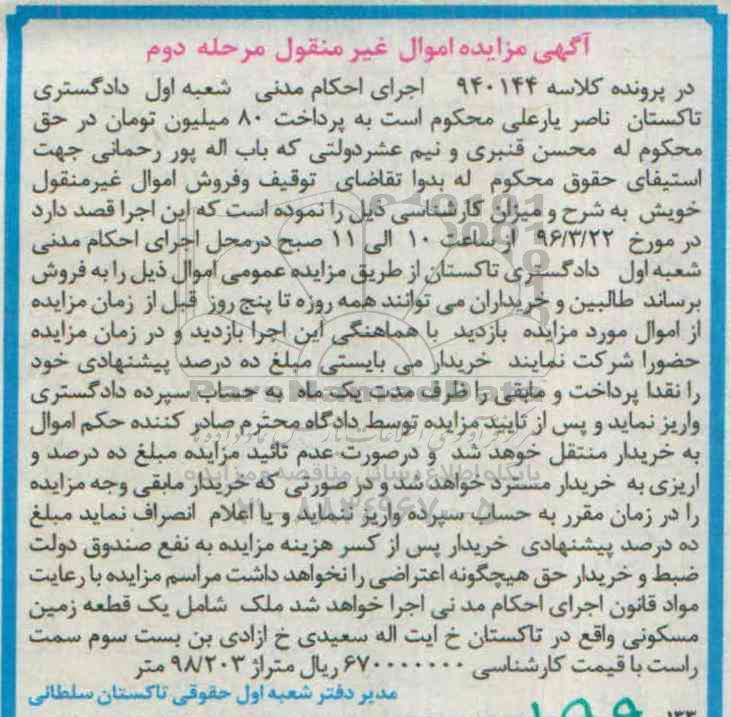 آگهی مزایده اموال غیر منقول مرحله دوم
در پرونده کلاسه ۹۴۰۱۴۴ اجرای احکام مدنی شعبه اول دادگستری
تاکستان ناصر یارعلی محکوم است به پرداخت ۸۰ میلیون تومان در حق
محکوم له محسن قنبری و نیم عشردولتی که باب اله پور رحمانی جهت
استیفای حقوق محکوم له بدوا تقاضای توقیف وفروش اموال غیرمنقول
خویش به شرح و میزان کارشناسی ذیل را نموده است که این اجرا قصد دارد
در مورخ ۹۶/۳/۲۲ از ساعت ۱۰ الی ۱۱ صبح درمحل اجرای احکام مدنی
شعبه اول دادگستری تاکستان از طریق مزایده عمومی اموال ذیل را به فروش
برساند طالبین و خریداران می توانند همه روزه تا پنج روز قبل از زمان مزایده
از اموال مورد مزایده بازدید با هماهنگی این اجرا بازدید و در زمان مزایده
حضورا شرکت نمایند خریدار می بایستی مبلغ ده درصد پیشنهادی خود
را نقدا پرداخت و مابقی را ظرف مدت یک ماه به حساب سپرده دادگستری
واریز نماید و پس از تایید مزایده توسط دادگاه محترم صادر کننده حکم اموال
به خریدار منتقل خوهد شد و درصورت عدم تائید مزایده مبلغ ده درصد و
اریزی به خریدار مسترد خواهد شد و در صورتی که خریدار مابقی وجه مزایده
را در زمان مقرر به حساب سپرده واریز ننماید و یا اعلام انصراف نماید مبلغ
ده درصد پیشنهادی خریدار پس از کسر هزینه مزایده به نفع صندوق دولت
ضبط و خریدار حق هیچگونه اعتراضی را نخواهد داشت مراسم مزایده با رعایت
مواد قانون اجرای احکام مد نی اجرا خواهد شد ملک شامل یک قطعه زمین
مسکونی واقع در تاکستان خ ایت اله سعیدی خ ازادی بن بست سوم سمت
راست با قیمت کارشناسی ۶۷۰۰۰۰۰۰۰ ریال متراژ ۹۸/۲۰۳ متر
مدیر دفتر شعبه اول حقوقی تاکستان سلطانی